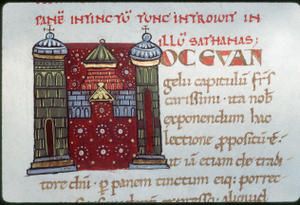 panē intinctū tunc introivit in
illū sathanas;
HOC EUAN
gelii capitulū frs̄
carissimi · ita nob̄
exponendum hac
lectione p̄positū ē·
ut iā etiam de tradi
tore dñi · p̱ panem tinctum eiq; porrec